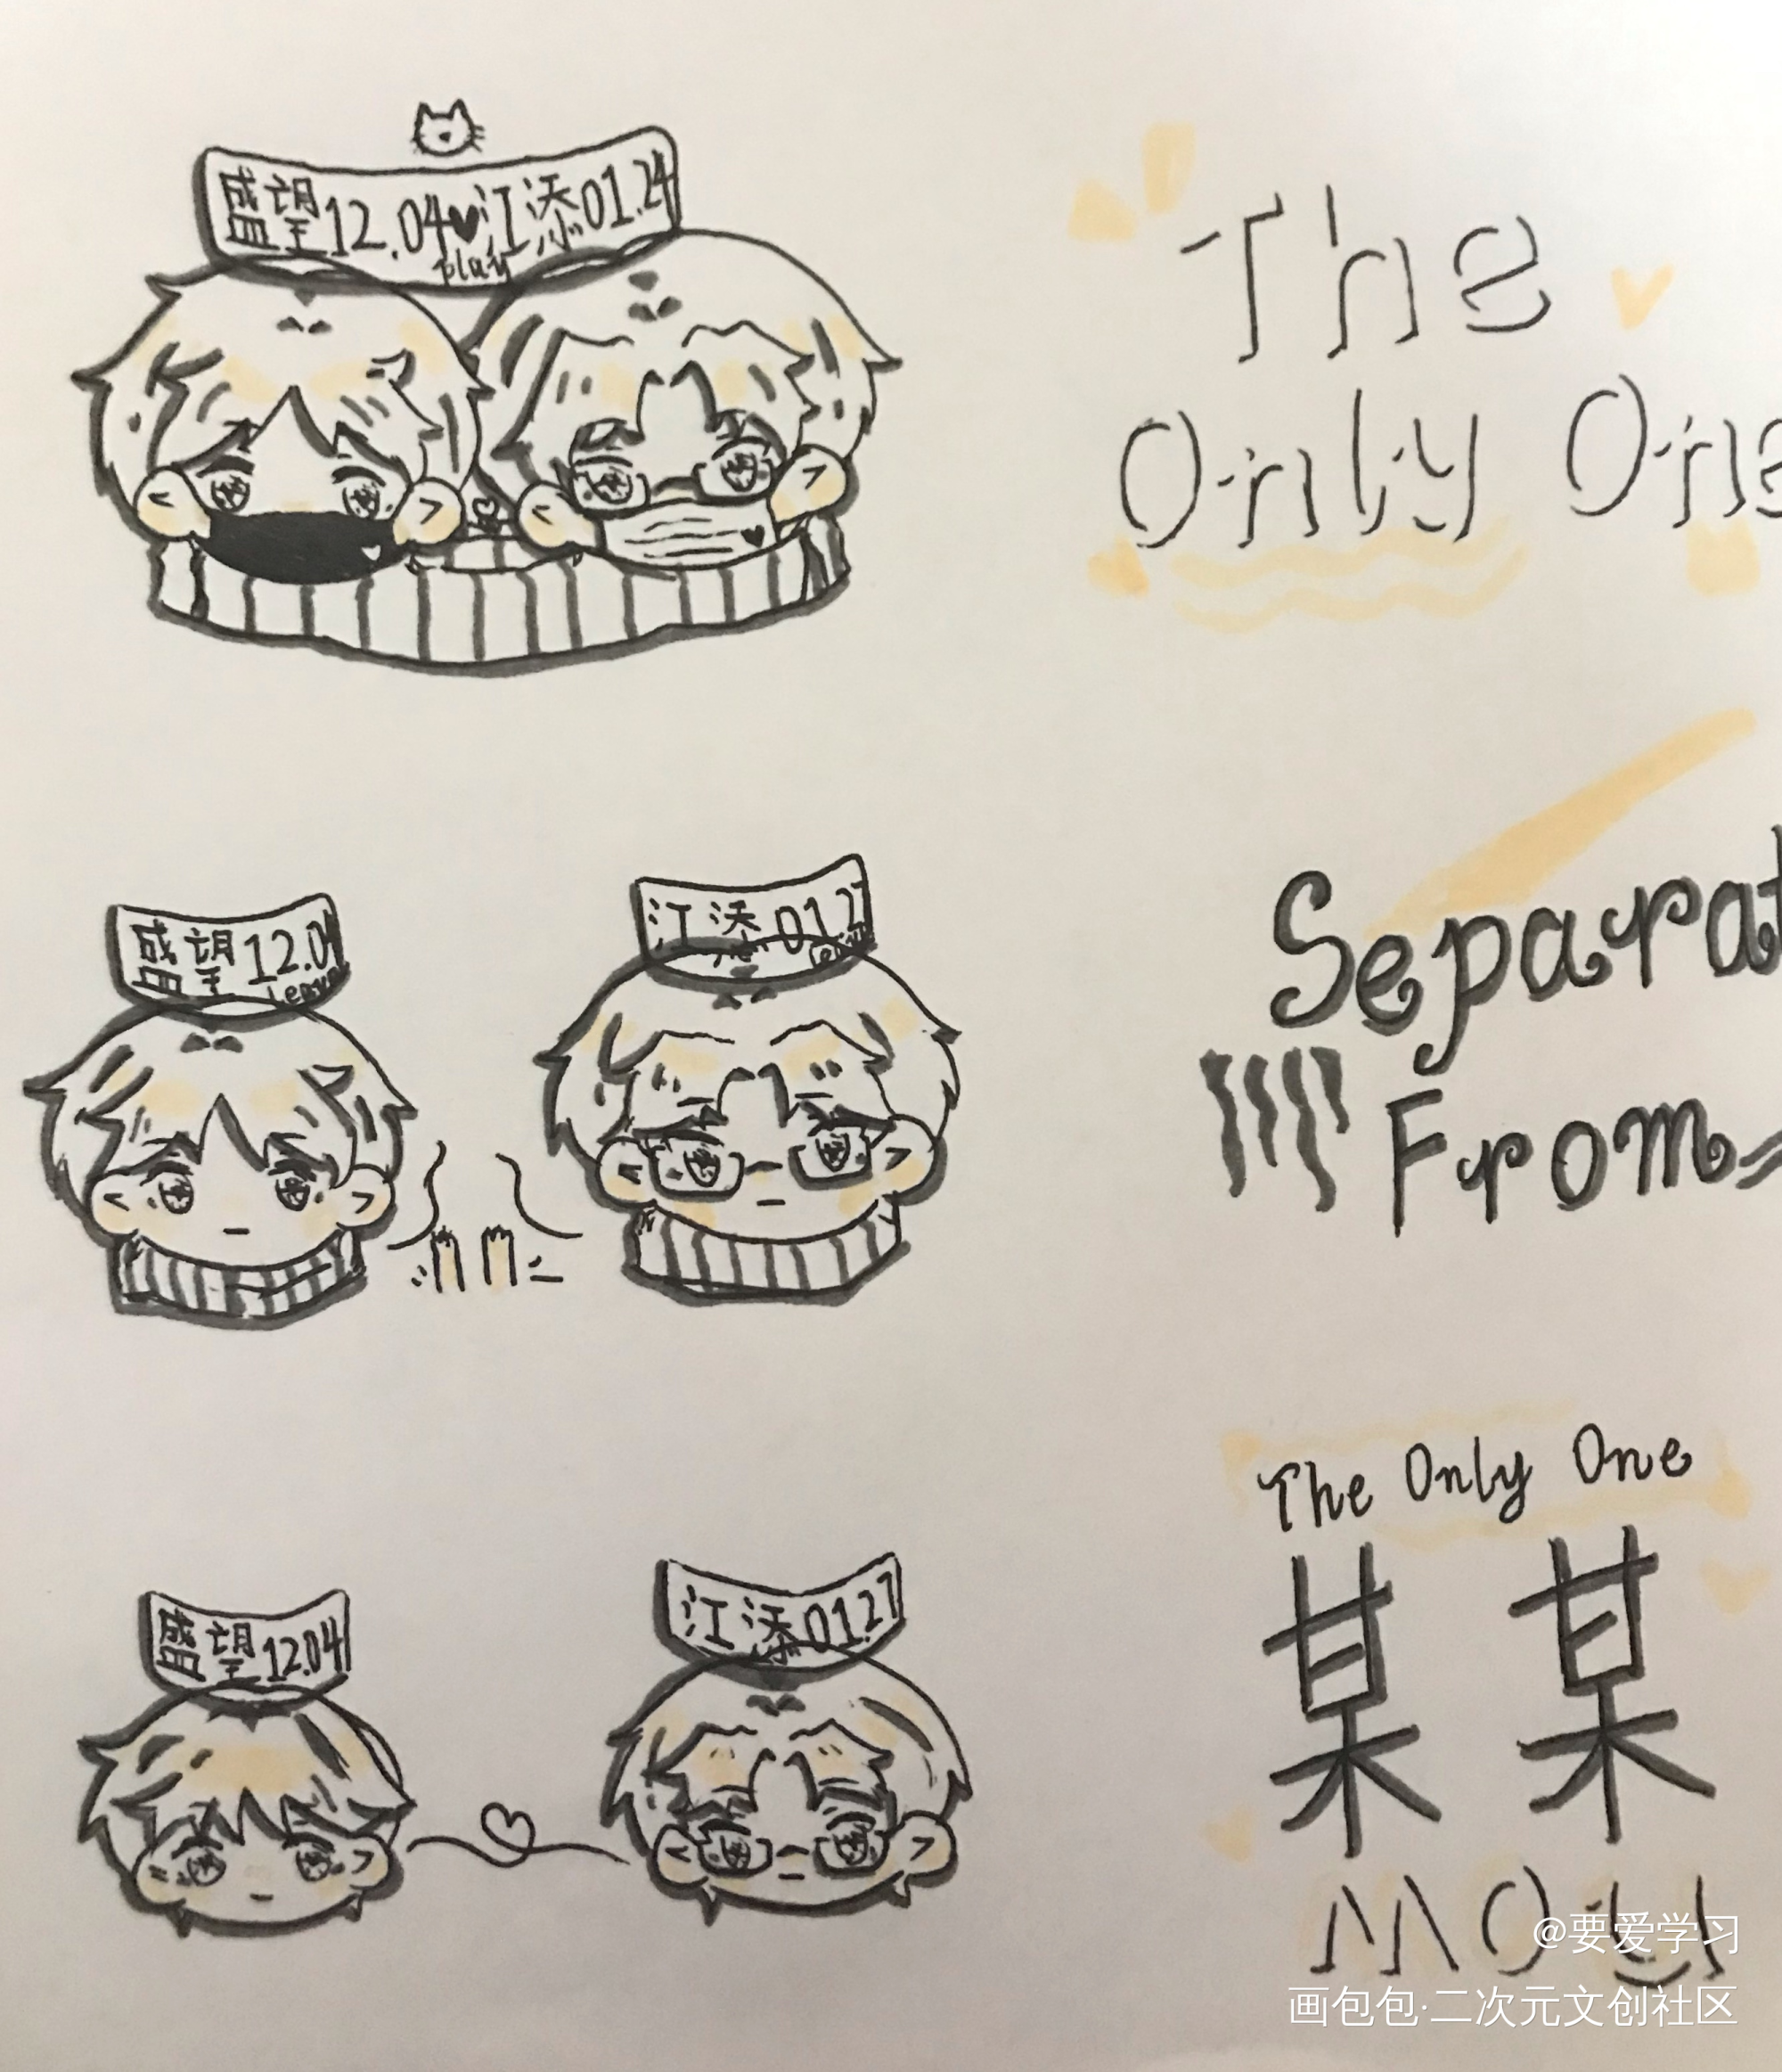 盛望12.04♥江添01.24
play
The
Only One
盛望12.04
江添01.27
Separat
From
The Only One
盛望12.04
江添01.27
某某
MOU
@要爱学习
画包包·二次元文创社区